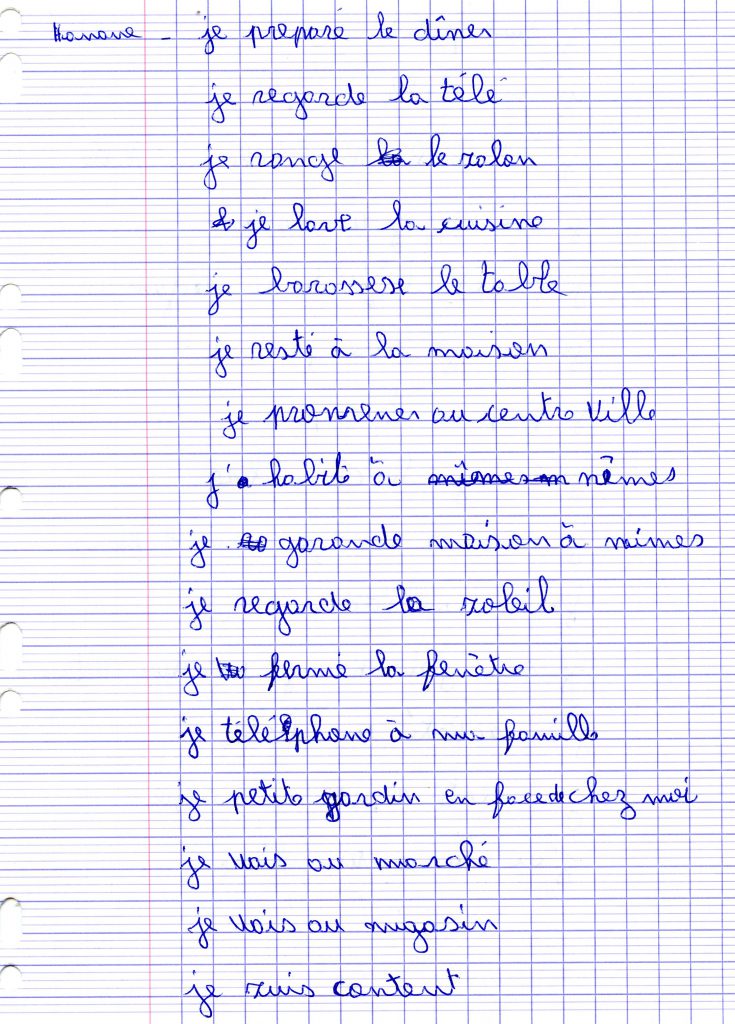 Hanane - je preparé le dîner
je regarde la télé
je range le salon
je lave la cuisine
je barassese le table
je resté à la maison
je promsener au centre ville
j'habite à nîmes
je garande maison à nimes
je regarde le soleil
je fermé la fenêtre
je téléphone à ma famille
je petite gardin en face de chez moi
je vais au marché
je vais au magasin
je suis content